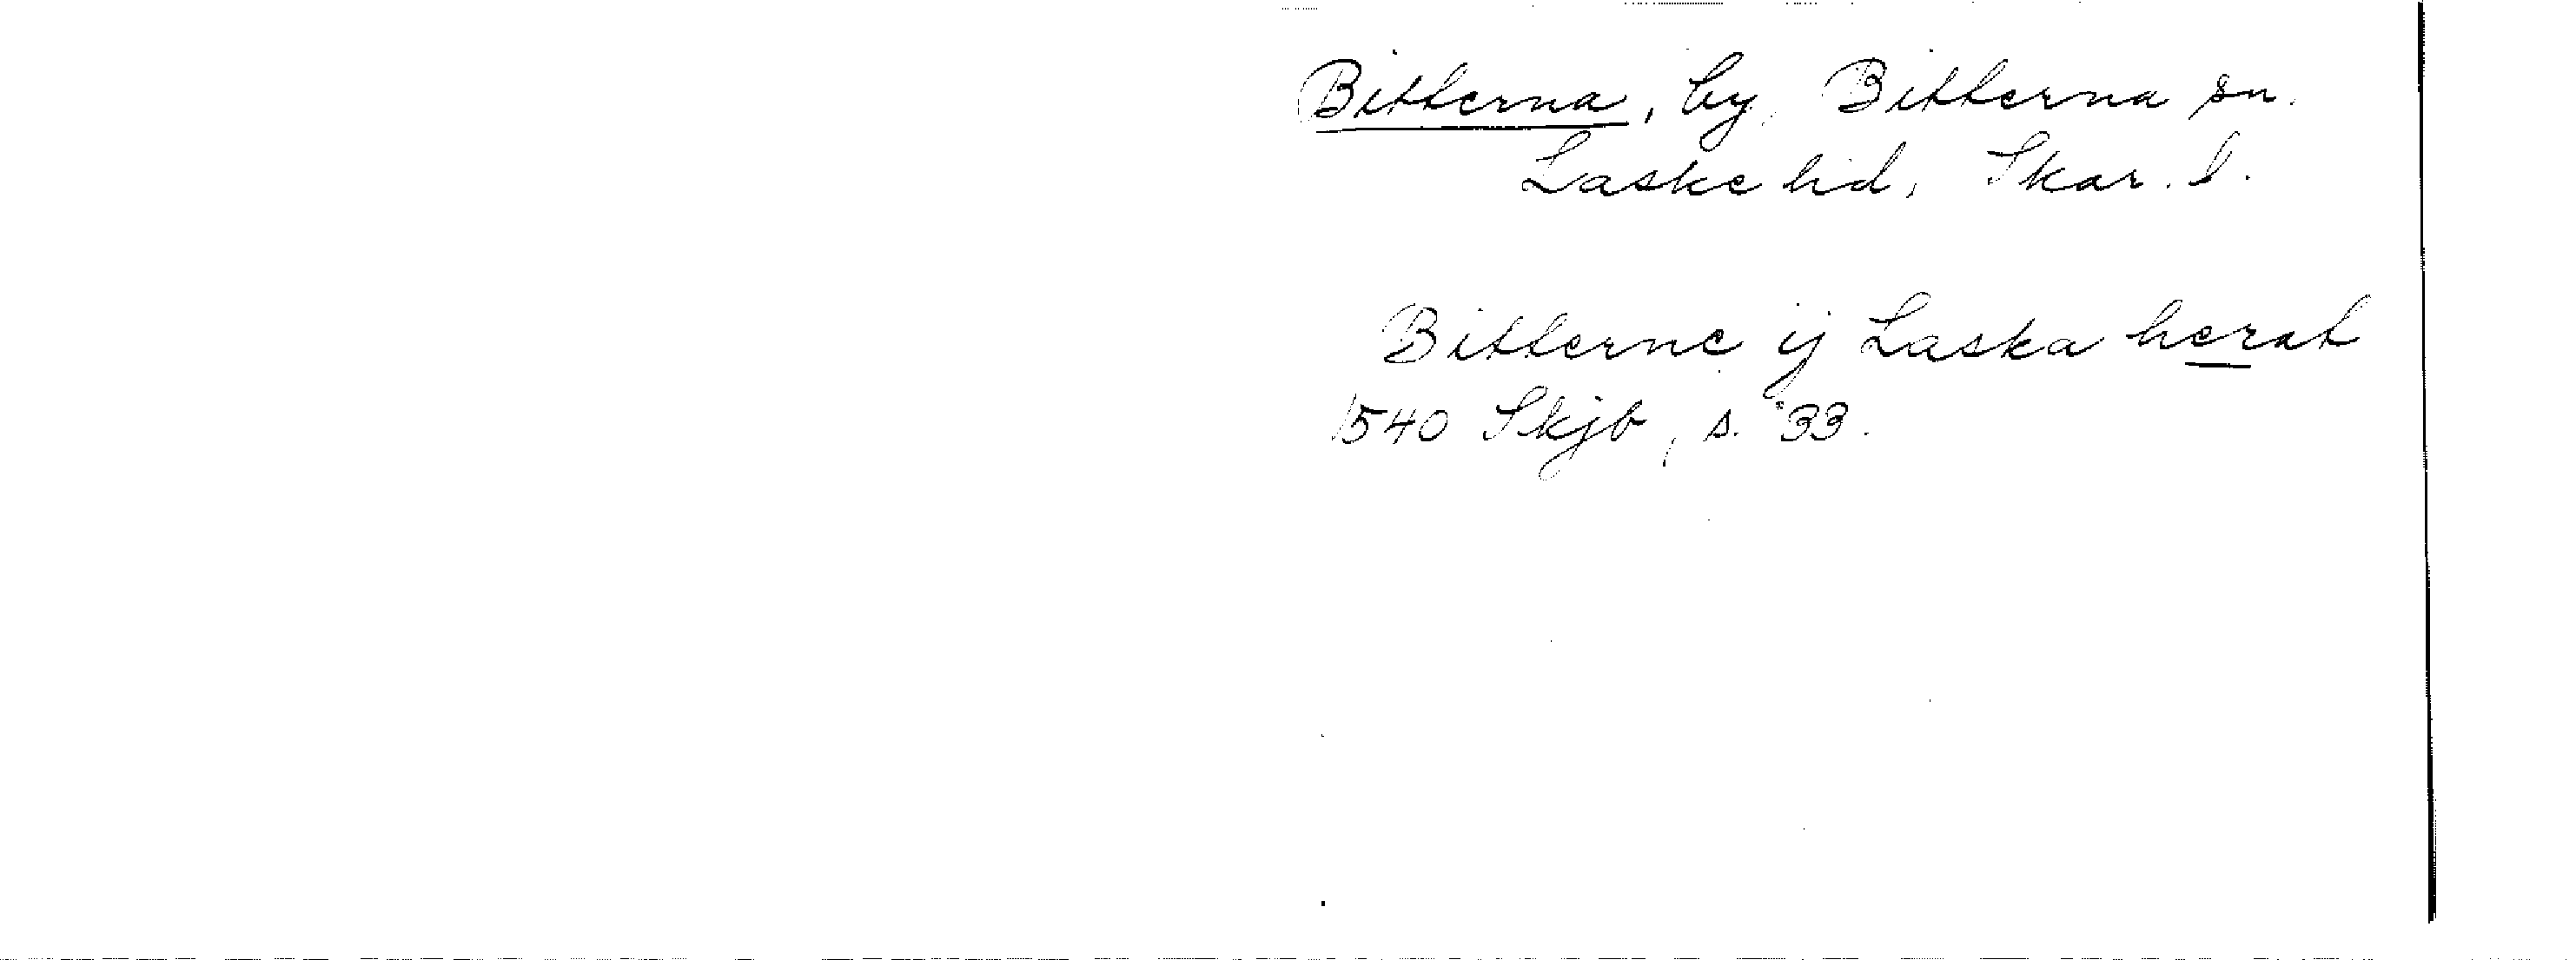 Bitterna, by, Bitterna sn.
Laske hd, Skar. l.
Bitterne ij Laska herat
1540 Skjb, s. 33.